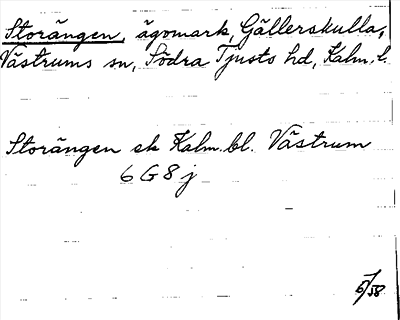 Storängen, ägomark, Gällerskulla,
Västrums sn, Södra Tjusts hd, Kalm. l.
Storängen ek Kalm. bl. Västrum
6 G 8 j
5/58